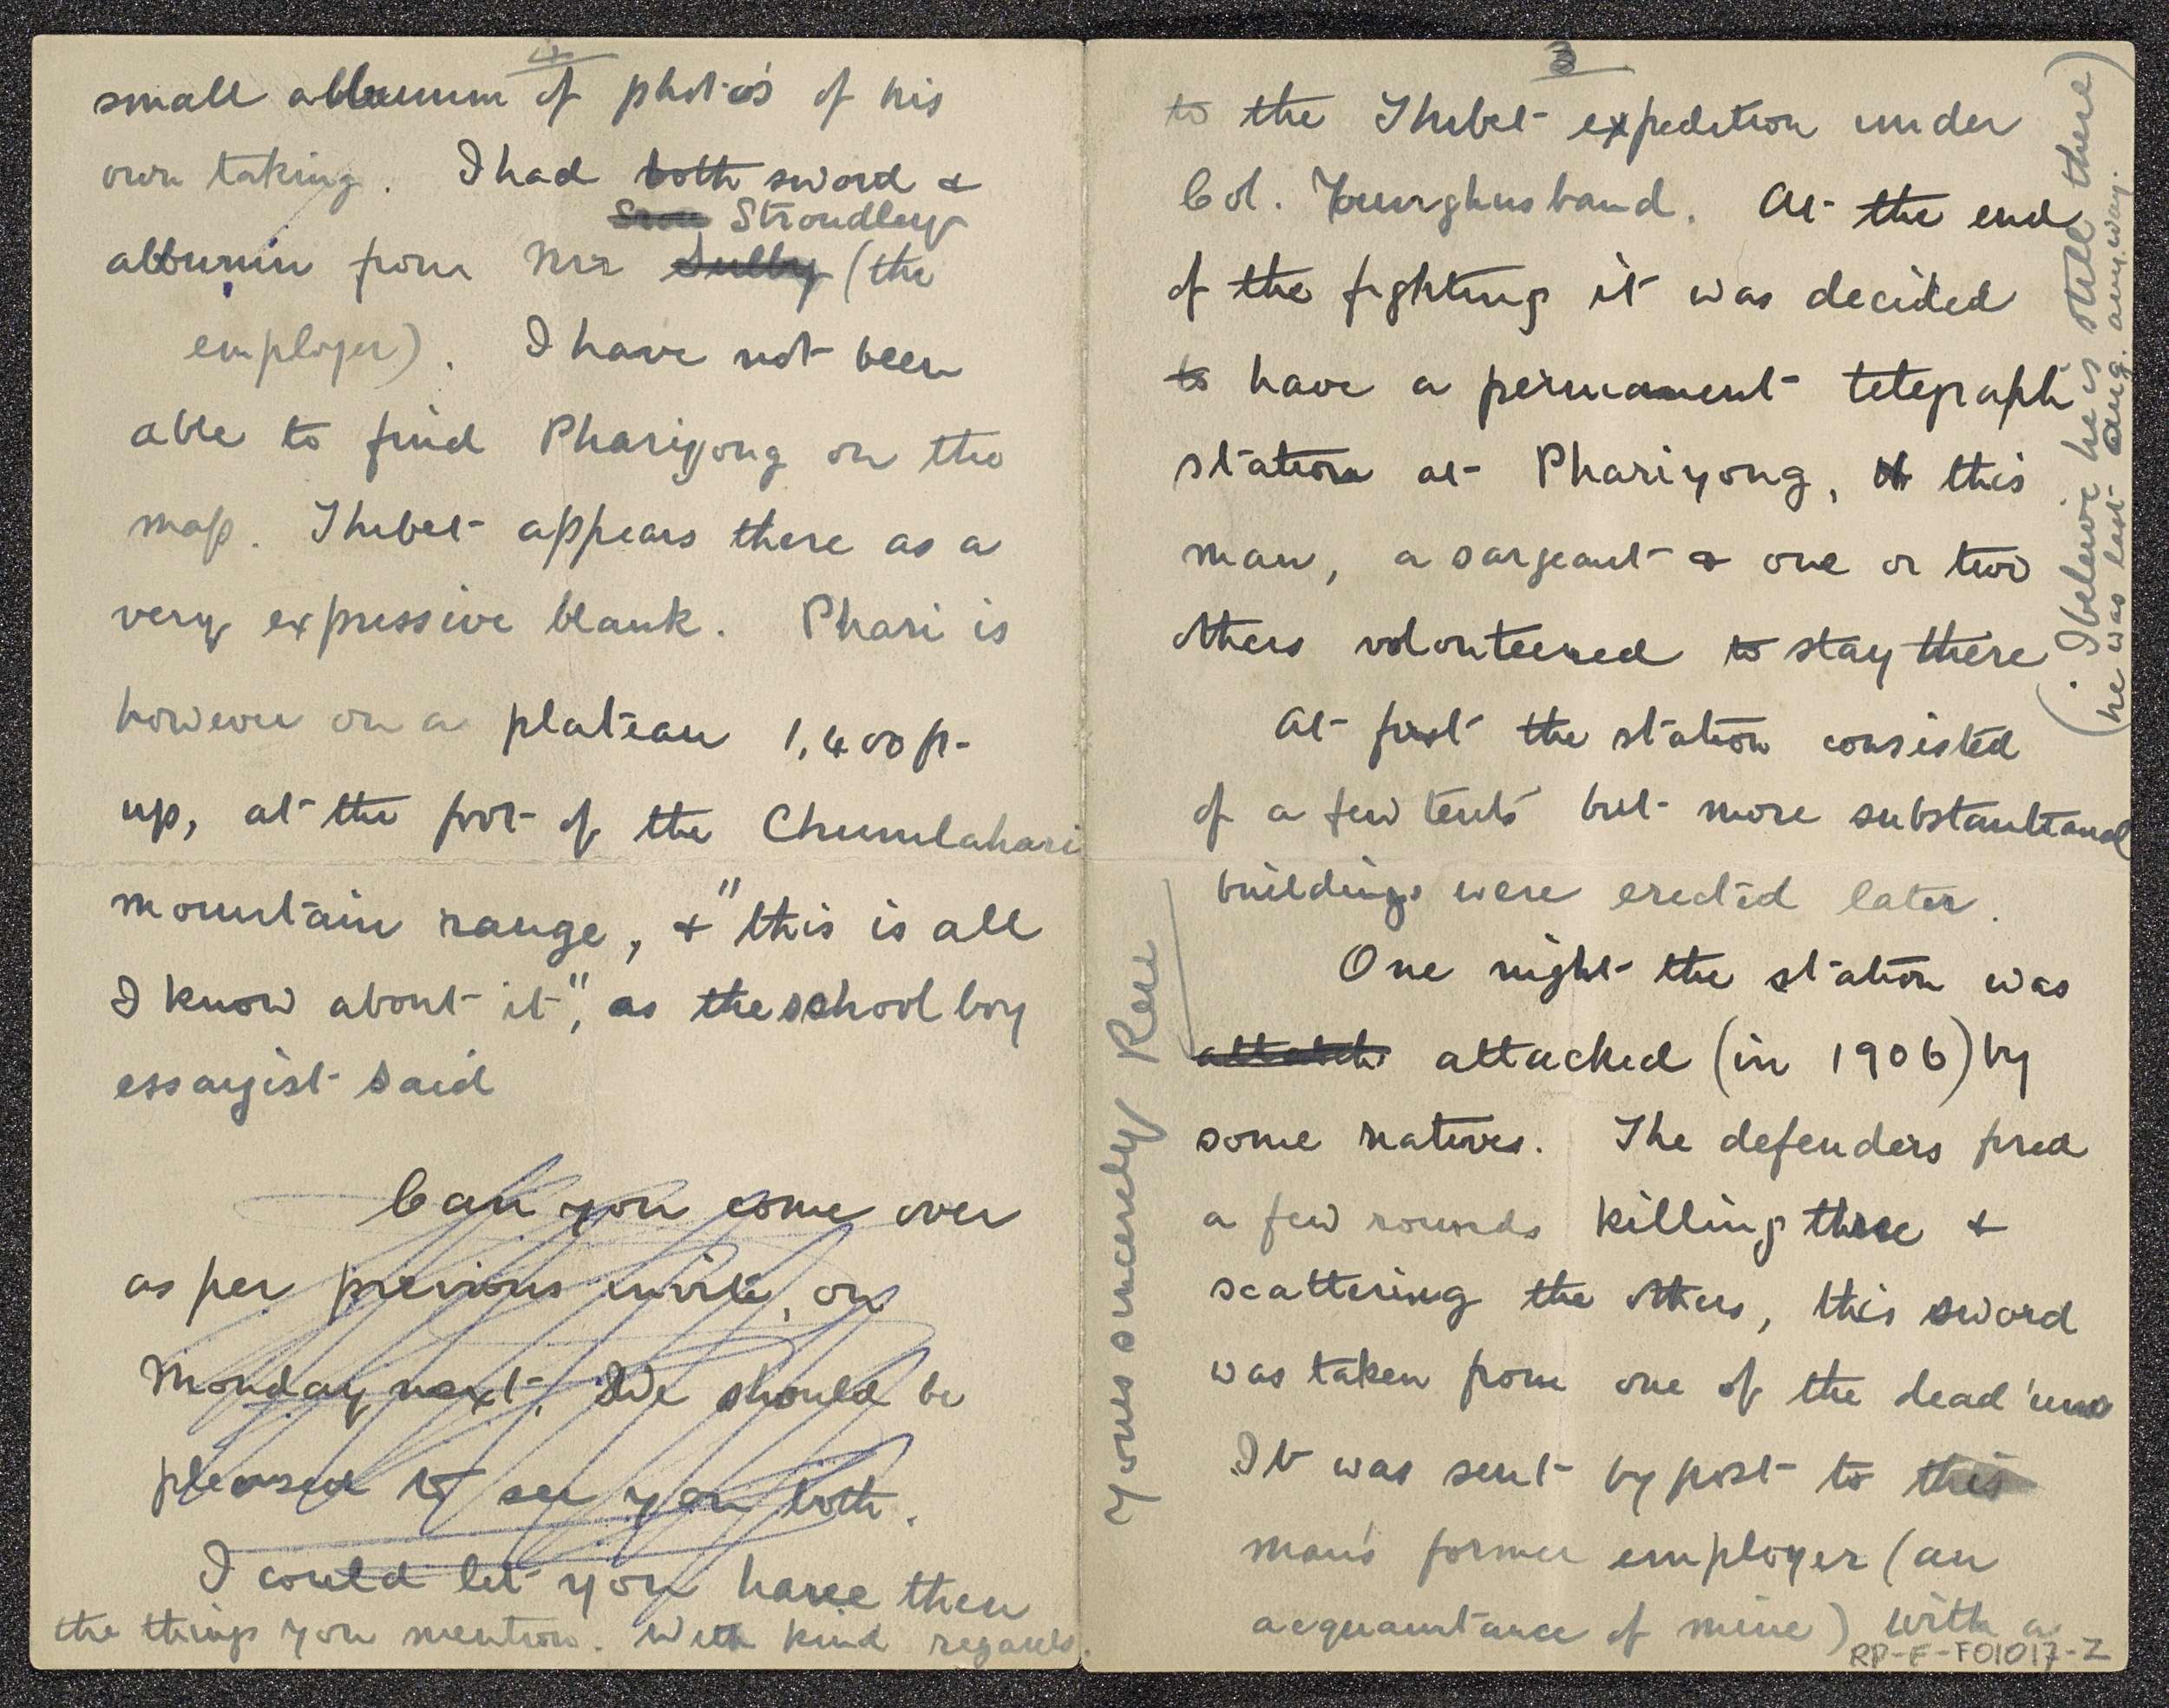 3
to the Thibet expedition under
Col. Younghusband. At the end
of the fighting it was decided
to have a permanent telegraph
station at Phariyong, this
man, a sargeant & one or two
others volonteered to stay there
(I beleive he is still there)
(he was last Aug. anyway.
At first the station consisted
of a few tents but more substantianal
buildings were erected later.
One night the station was
attacked (in 1906) by
some natives. The defenders fired
a few rounds killing three &
scattering the others, this sword
was taken from one of the dead 'uns
It was sent by post to this
man's former employer (an
acquaintance of mine) with a
RP-F-F01017-Z
4
small allbumm of photo's of his
own taking. I had both sword &
Stroudley
allbumm from Mr Sulby (the
employer). I have not been
able to find Phariyong on the
map. Thibet appears there as a
very expressive blank. Phari is
however on a plateau 1,400 ft
up, at the foot of the Chumlahari
mountain range, & "this is all
I know about it", as the schoolboy
essayist said
Can you come over
as per previous invite, on
Monday next. We should be
pleased to see you both.
I could let you have then
the things you mention. With kind regards.
Yours sincerely